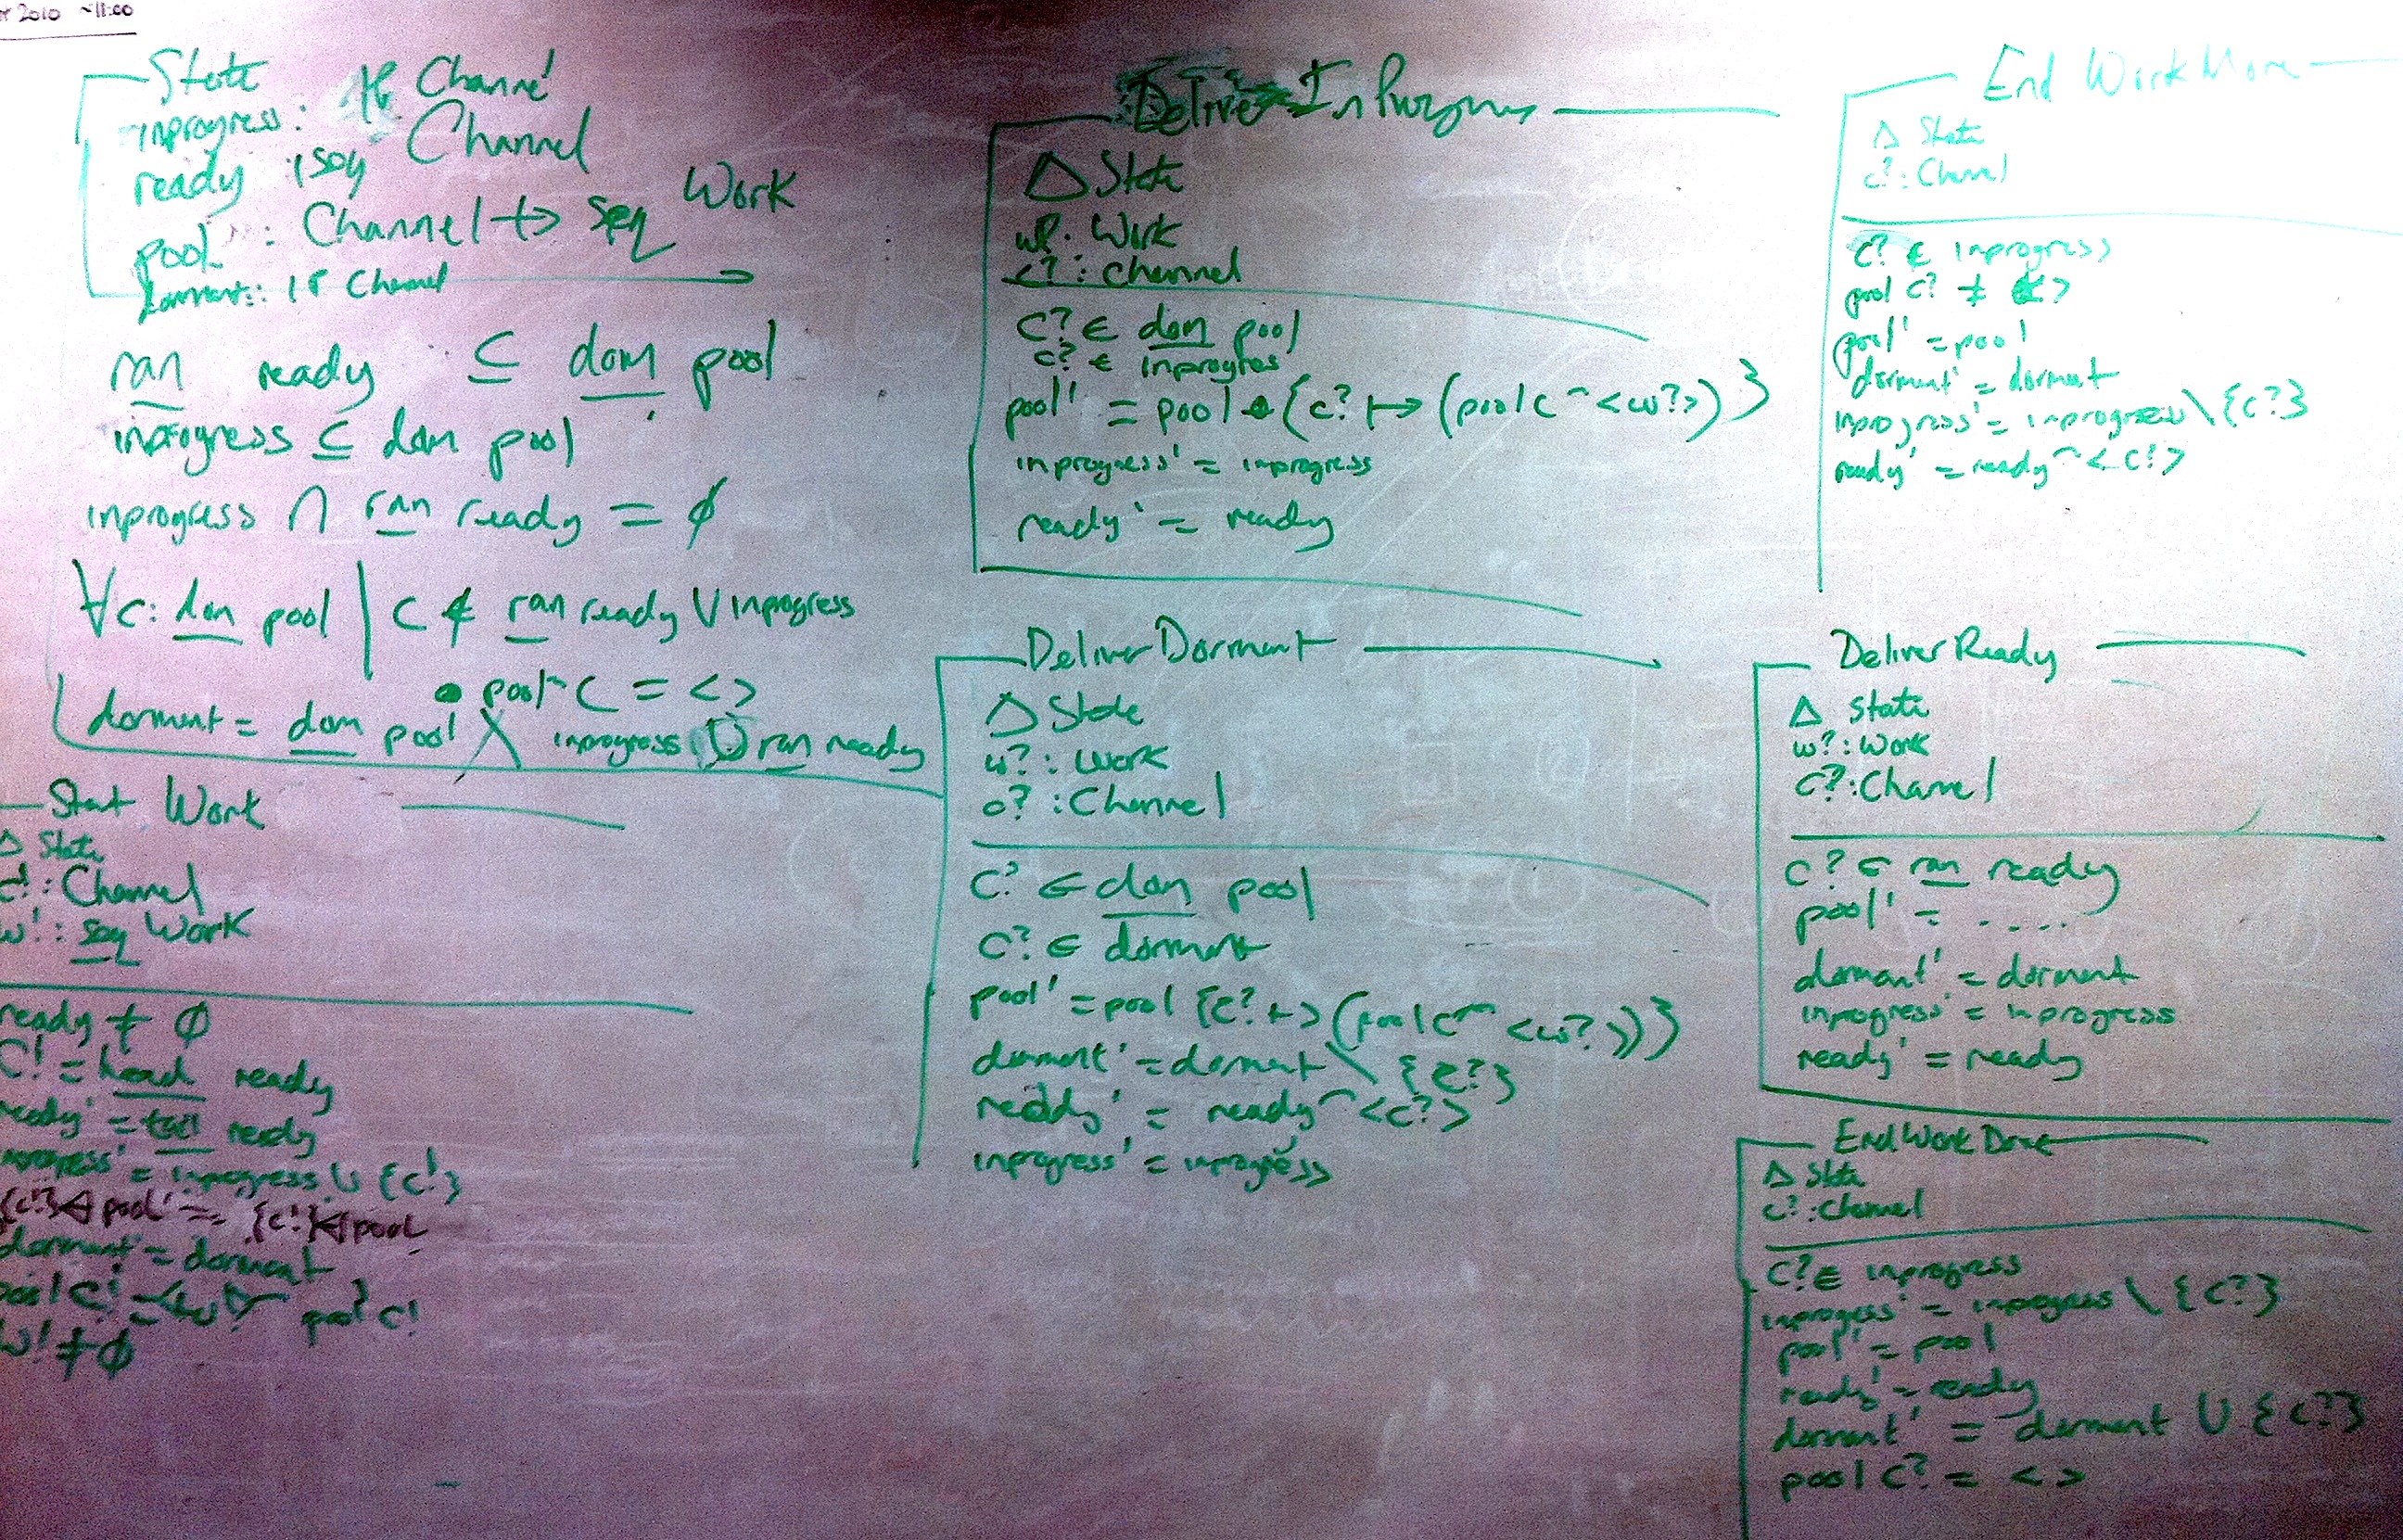 2010 ~11:00
State
inprogress: ℙ Channel
ready : seq Channel
pool : Channel ⇸ seq Work
dormant: ℙ Channel
ran ready ⊆ dom pool
inprogress ⊆ dom pool
inprogress ∩ ran ready = ∅
∀c: dom pool | c ∉ ran ready ∪ inprogress
• pool c = < >
dormant = dom pool \ inprogress ∪ ran ready
Start Work
Δ State
c!: Channel
w!: seq Work
ready ≠ ∅
c! = head ready
ready' = tail ready
inprogress' = inprogress ∪ {c!}
{c!}⩤pool' = {c!}⩤pool
dormant' = dormant
pool c! = pool' c!
w! ≠ ∅
Deliver InProgress
Δ State
w?: Work
c?: Channel
c? ∈ dom pool
c? ∈ inprogress
pool' = pool ⊕ {c? ↦ (pool c ⌢ <w?>)}
inprogress' = inprogress
ready' = ready
DeliverDormant
Δ State
w?: Work
c?: Channel
c? ∈ dom pool
c? ∈ dormant
pool' = pool {c? ↦ (pool c ⌢ <w?>)}
dormant' = dormant \ {c?}
ready' = ready ⌢ <c?>
inprogress' = inprogress
End WorkMore
Δ State
c?: Channel
c? ∈ inprogress
pool c? ≠ < >
pool' = pool
dormant' = dormant
inprogress' = inprogress \ {c?}
ready' = ready ⌢ <c?>
DeliverReady
Δ State
w?: Work
c?: Channel
c? ∈ ran ready
pool' = .....
dormant' = dormant
inprogress' = inprogress
ready' = ready
EndWorkDone
Δ State
c?: Channel
c? ∈ inprogress
inprogress' = inprogress \ {c?}
pool' = pool
ready' = ready
dormant' = dormant ∪ {c?}
pool c? = < >